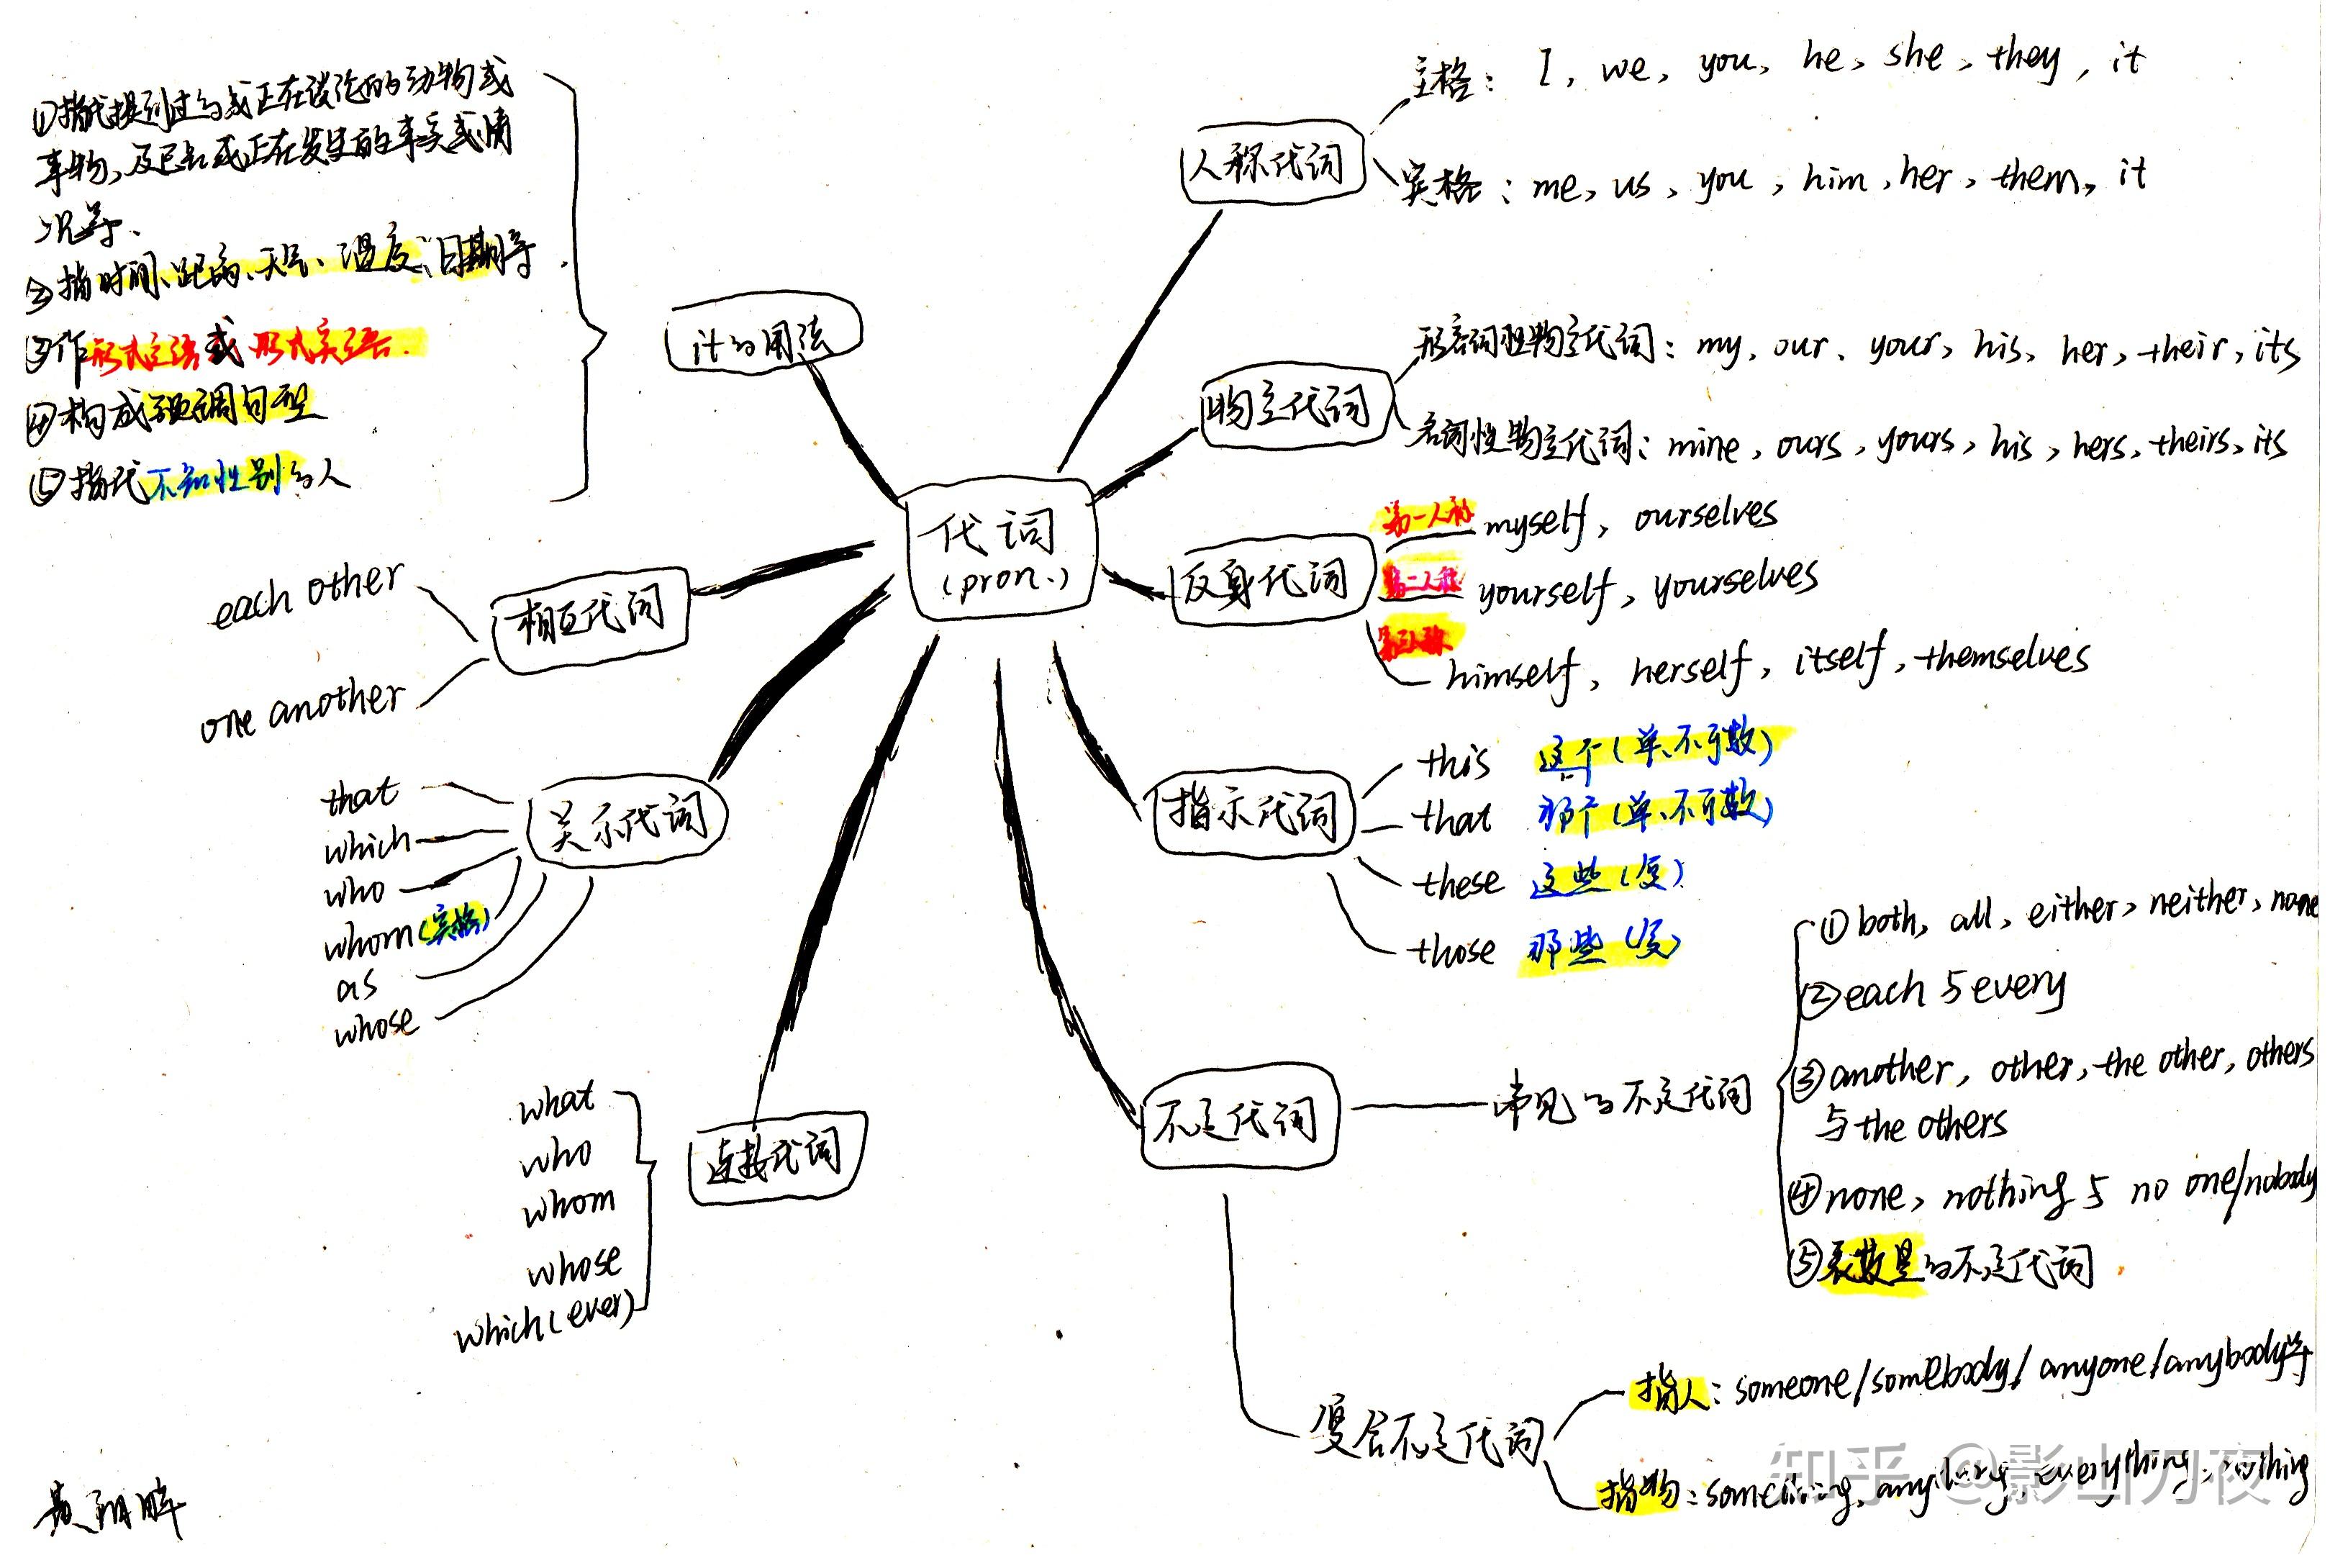 代词
(pron.)
人称代词
主格：I, we, you, he, she, they, it
宾格：me, us, you, him, her, them, it
物主代词
形容词性物主代词：my, our, your, his, her, their, its
名词性物主代词：mine, ours, yours, his, hers, theirs, its
反身代词
第一人称 myself, ourselves
第二人称 yourself, yourselves
第三人称 himself, herself, itself, themselves
指示代词
this 这个(单、不可数)
that 那个(单、不可数)
these 这些(复)
those 那些(复)
不定代词
常见的不定代词
①both, all, either, neither, none
②each与every
③another, other, the other, others
与the others
④none, nothing与no one/nobody
⑤表数量的不定代词
复合不定代词
指人：someone/somebody/anyone/anybody等
指物：something, anything, everything, nothing
连接代词
what
who
whom
whose
which(ever)
关系代词
that
which
who
whom(宾格)
as
whose
相互代词
each other
one another
it的用法
①指代提到过的或正在谈论的动物或
事物,及已知或正在发生的事实或情
况等.
②指时间、距离、天气、温度、日期等.
③作形式主语或形式宾语.
④构成强调句型
⑤指代不知性别的人
知乎 @影山刀夜